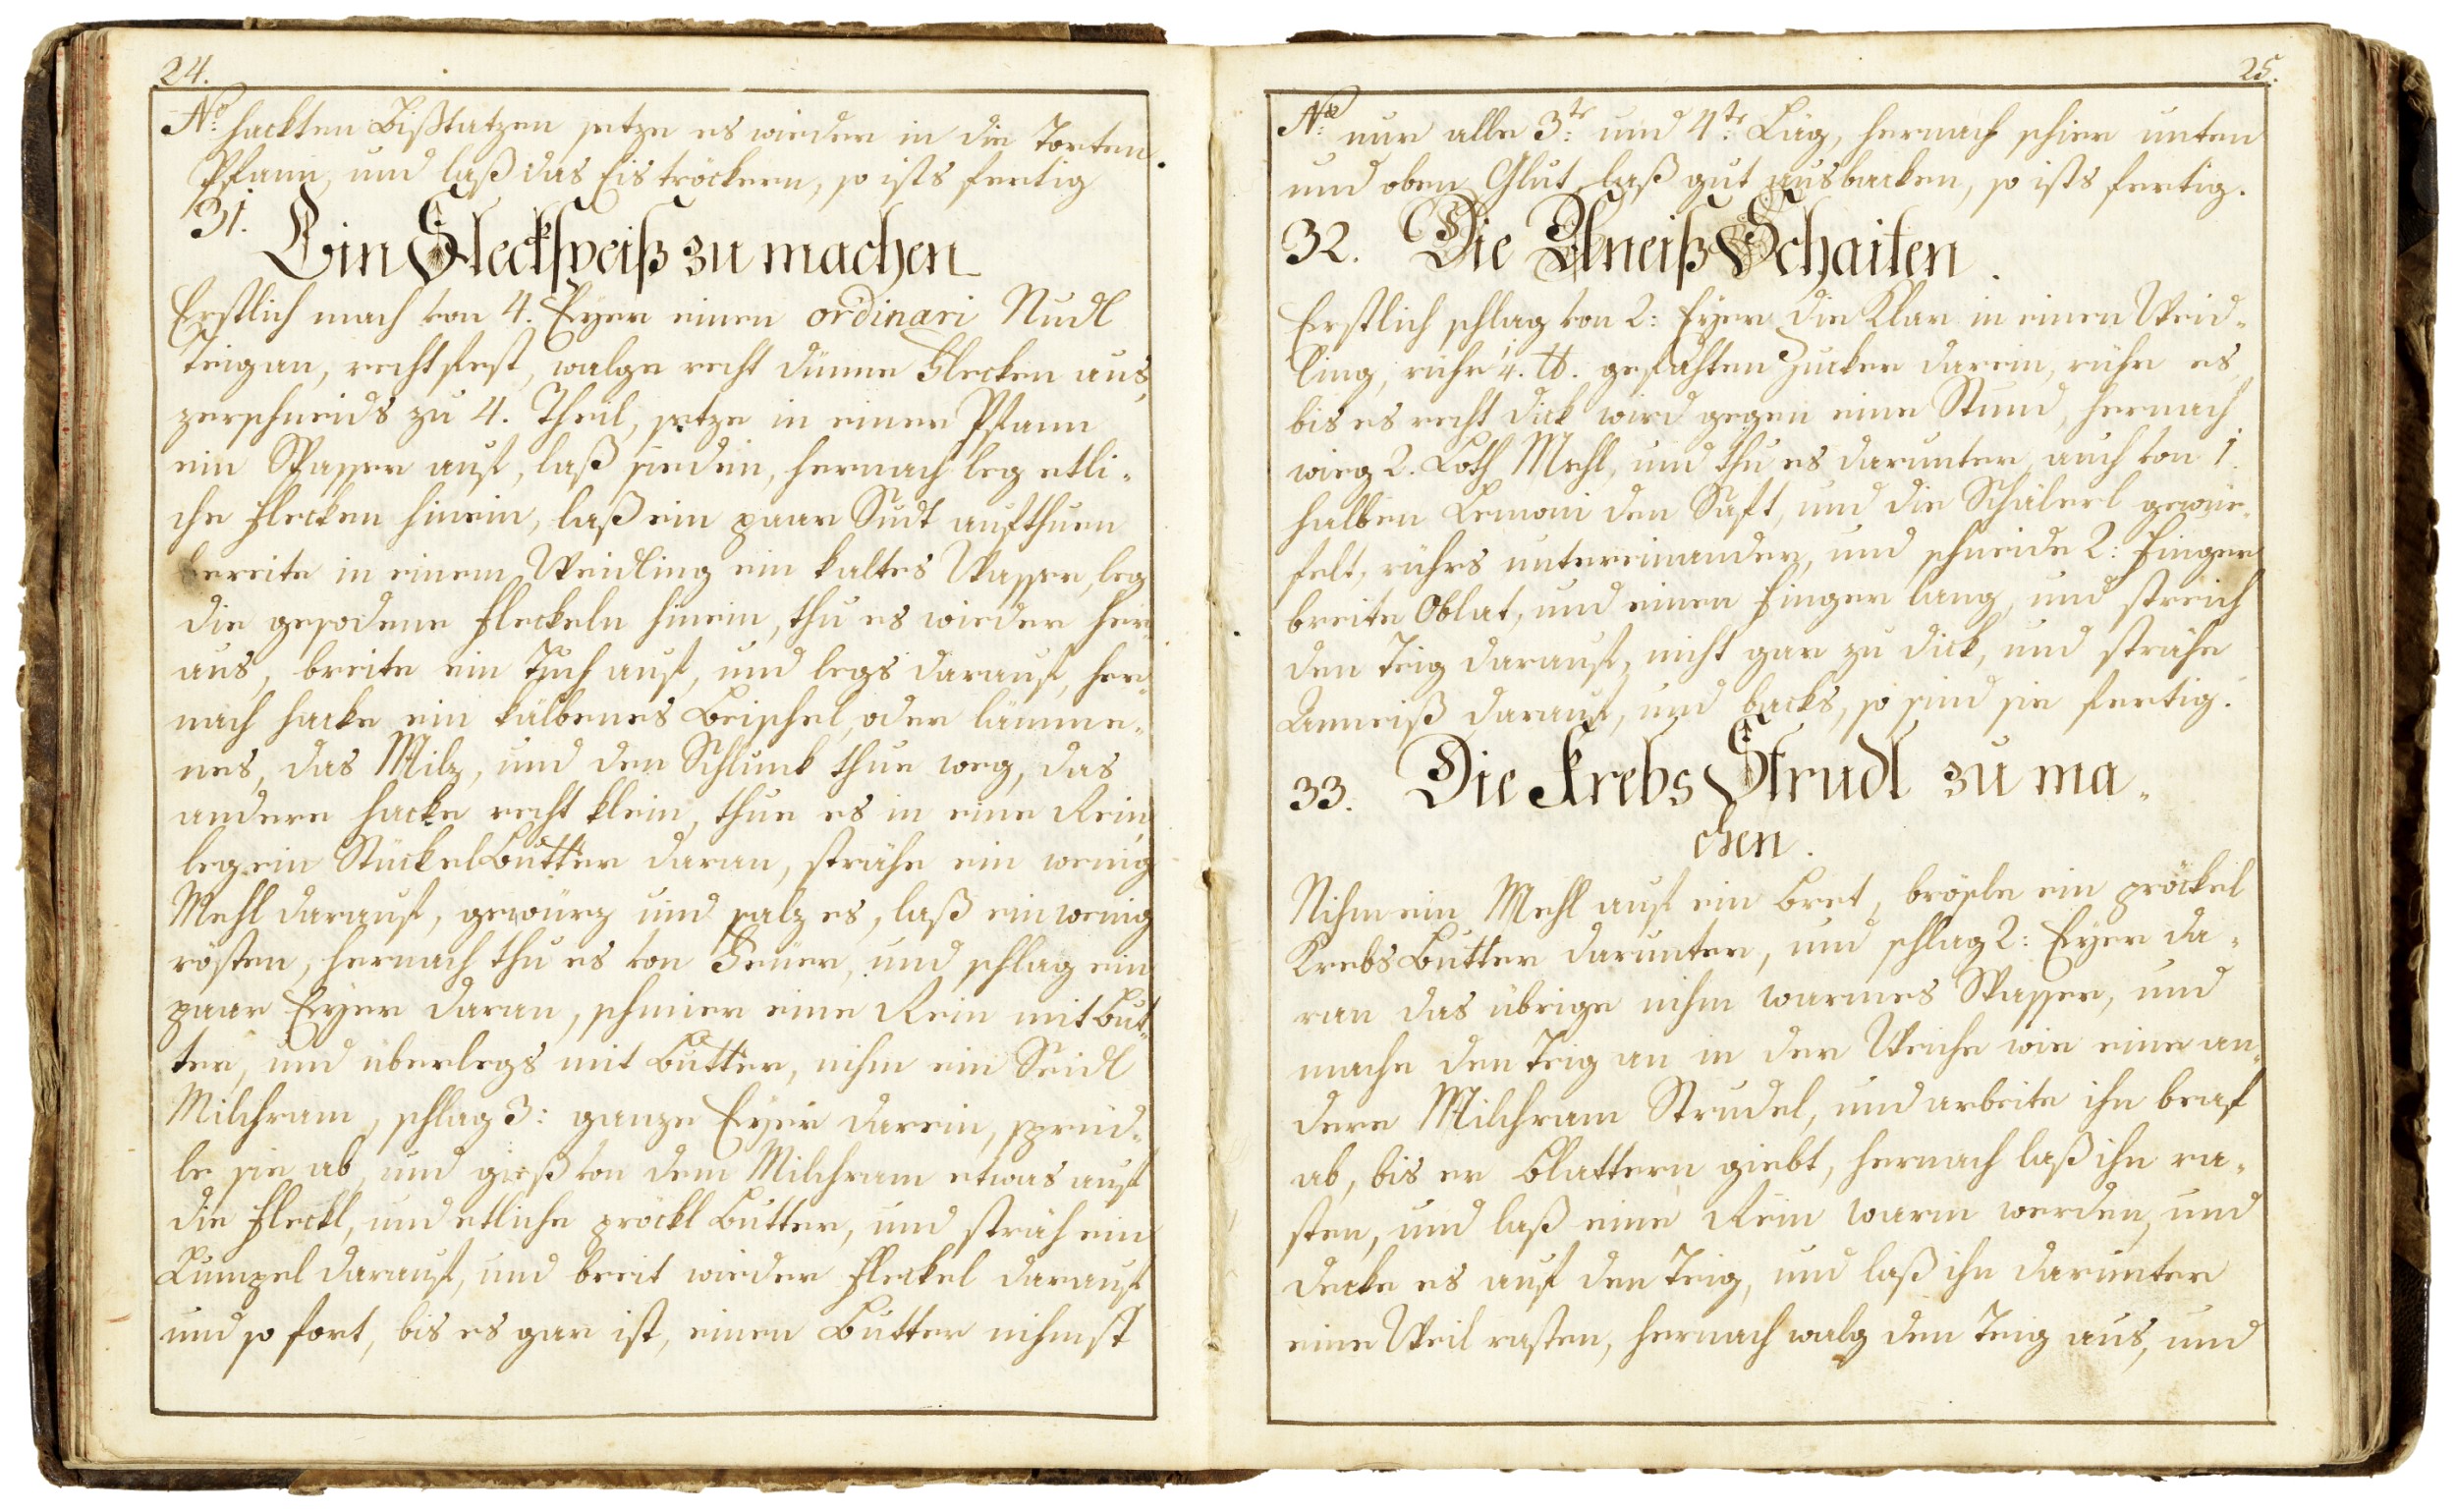 24.
No: hackten Bißtatzen setze es wieder in die Torten
Pfann, und laß das Eis tröckern, so ists fertig
31.
Ein Fleckspeiß zu machen
Erstlich mach von 4. Eyer einen ordinari Nudl
Teig an, recht fest, walge recht dünne Flecken aus,
zerschneids zu 4. Theil, setze in einer Pfann
ein Wasser auf, laß sieden, hernach leg etli-
che Flecken hinein, laß ein paar Sudt aufthuen
bereite in einem Weidling ein kaltes Wasser, leg
die gesodene Fleckeln hinein, thu es wieder her-
aus, breite ein Tuch auf, und legs darauf, her-
nach hacke ein kälbernes Beischel, oder lämmer-
nes, das Milz, und den Schlunk thue weg, das
andere hacke recht klein, thue es in eine Rein,
leg ein Stückel Butter daran, strähe ein wenig
Mehl darauf, gewürz und salz es, laß ein wenig
rösten, hernach thu es von Feuer, und schlag ein
paar Eyer daran, schmier eine Rein mit But-
ter, und überlegs mit Butter, nihm ein Seidl
Milchram, schlag 3: ganze Eyer darein, sprud-
le sie ab, und gieß von dem Milchram etwas auf
die Fleckl, und etliche pröckl Butter, und sträh ein
Lumpel darauf, und breit wieder Fleckel darauf
und so fort, bis es gar ist, einen Butter nihmst
25.
No: nur alle 3te: und 4te: Läg, hernach schier unten
und oben Glut, laß gut ausbacken, so ists fertig.
32. Die Aneiß Schaiten.
Erstlich schlag von 2: Eyer die Klar in einen Weid-
ling, rühr 1/4. ℔. gefähten Zucker darein, rühr es
bis es recht dick wird gegen eine Stund, hernach
wieg 2. Loth Mehl, und thu es darunter, auch von 1.
halben Lemoni den Saft, und die Schälerl gewür-
felt, rührs untereinander, und schneide 2: Finger
breite Oblat, und einen Finger lang, und streich
den Teig darauf, nicht gar zu dick, und strähe
Anneiß darauf, und backs, so sind sie fertig.
33. Die Krebs Strudl zu ma-
chen.
Nihm ein Mehl auf ein Bret, brösle ein pröckel
Krebs Butter darunter, und schlag 2: Eyer da-
ran das übrige nihm warmes Wasser, und
mache den Teig an in der Weiche wie eine an-
dere Milchram Strudel, und arbeite ihn braf
ab, bis er Blattern giebt, hernach laß ihn ra-
sten, und laß eine Rein warm werden, und
decke es auf den Teig, und laß ihn darunter
eine Weil rasten, hernach walg den Teig aus, und